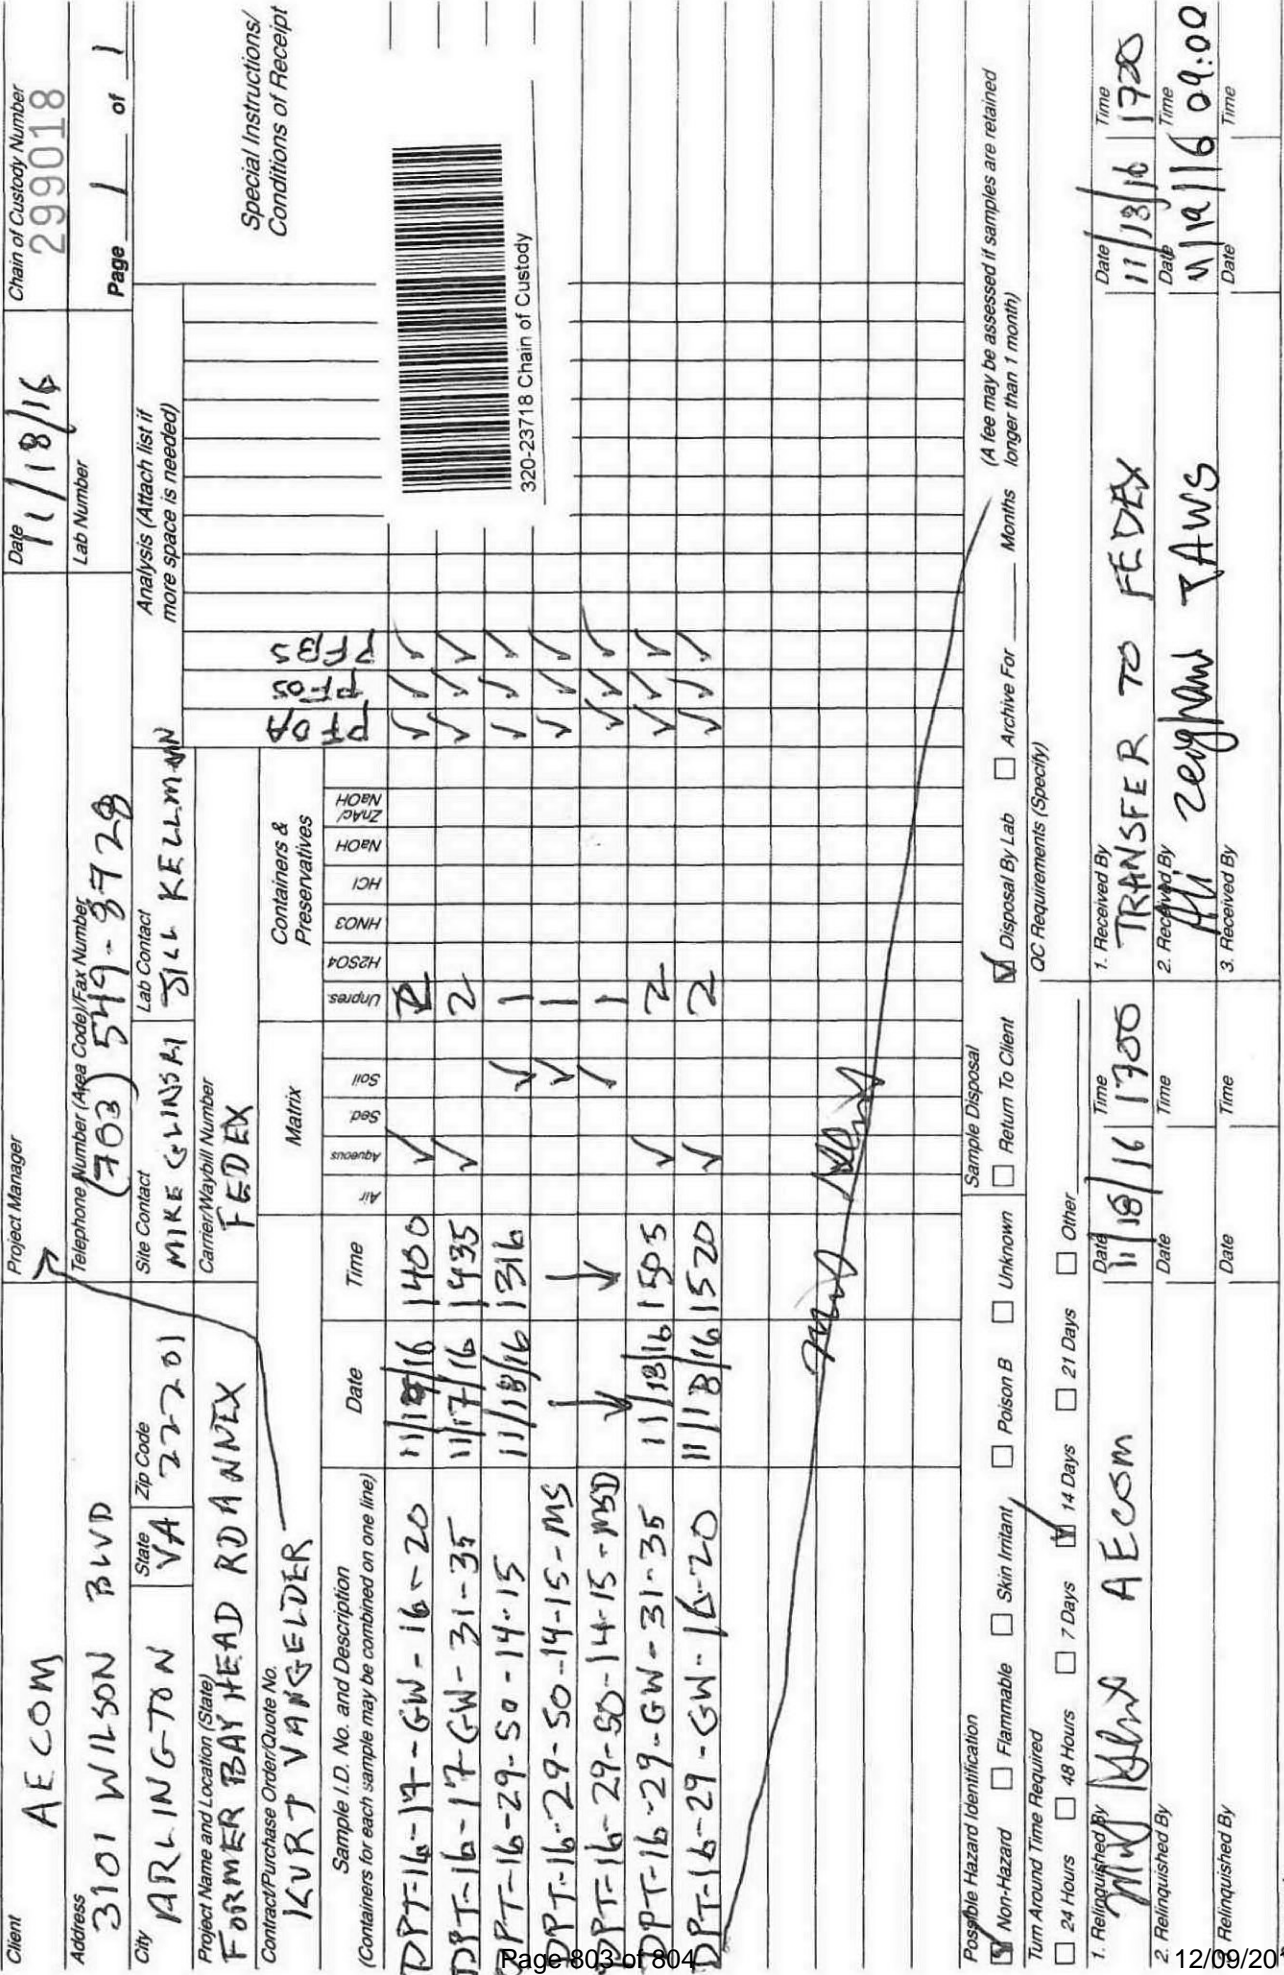 Client
AECOM
Project Manager
Date
11/18/16
Chain of Custody Number
299018
Address
3101 WILSON BLVD
Telephone Number (Area Code)/Fax Number
(703) 549-8728
Lab Number
Page 1 of 1
City
ARLINGTON
State
VA
Zip Code
22201
Site Contact
MIKE GLINSKI
Lab Contact
JILL KELLMANN
Analysis (Attach list if
more space is needed)
Project Name and Location (State)
FORMER BAYHEAD RD ANNEX
Carrier/Waybill Number
FEDEX
Contract/Purchase Order/Quote No.
KURT VANGELDER
Matrix
Containers &
Preservatives
PFOA
PFOS
PFBS
Special Instructions/
Conditions of Receipt
Sample I.D. No. and Description
(Containers for each sample may be combined on one line)
Date
Time
Air
Aqueous
Sed
Soil
Unpres.
H2SO4
HNO3
HCl
NaOH
ZnAc/
NaOH
DPT-16-17-GW-16-20 1400 ✓ 2 ✓ ✓ ✓
DPT-16-17-GW-31-35 11/17/16 1435 ✓ 2 ✓ ✓ ✓
DPT-16-29-SO-14-15 11/18/16 1316 ✓ 1 ✓ ✓ ✓
DPT-16-29-SO-14-15-MS ↓ ↓ ✓ 1 ✓ ✓ ✓
DPT-16-29-SO-14-15-MSD ✓ 1 ✓ ✓ ✓
DPT-16-29-GW-31-35 11/18/16 1505 ✓ 2 ✓ ✓ ✓
DPT-16-29-GW-16-20 11/18/16 1520 ✓ 2 ✓ ✓ ✓
320-23718 Chain of Custody
Possible Hazard Identification
Non-Hazard
Flammable
Skin Irritant
Poison B
Unknown
Sample Disposal
Return To Client
Disposal By Lab
Archive For
Months
(A fee may be assessed if samples are retained
longer than 1 month)
Turn Around Time Required
24 Hours
48 Hours
7 Days
14 Days
21 Days
Other
QC Requirements (Specify)
1. Relinquished By
AECOM
Date
11/18/16
Time
1700
1. Received By
TRANSFER TO FEDEX
Date
11/18/16
Time
1700
2. Relinquished By
Date
Time
2. Received By
Ali Zeigham TAWS
Date
11/19/16
Time
09:00
3. Relinquished By
Date
Time
3. Received By
Date
Time
Page 803 of 804
12/09/20